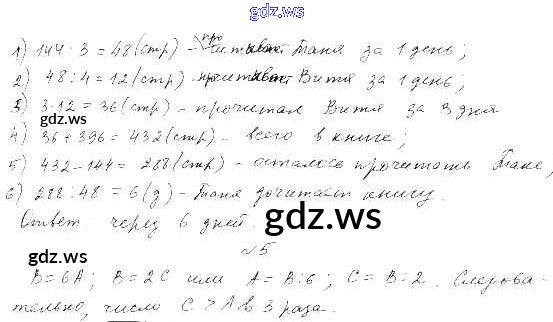 gdz.ws
1) 144 : 3 = 48 (стр) - прочитала Таня за 1 день;
2) 48 : 4 = 12 (стр) - Витя за 1 день;
3) 3·12 = 36 (стр) - прочитал Витя за 3 дня
gdz.ws
4) 36 + 396 = 432 (стр) - всего в книге;
5) 432 - 144 = 288 (стр) - осталось прочитать Тане;
6) 288 : 48 = 6 (д) - Таня дочитает книгу.
Ответ: через 6 дней.
gdz.ws
№5
gdz.ws
B = 6A; B = 2C или A = B:6; C = B:2. Следова-
тельно, число C > A в 3 раза.